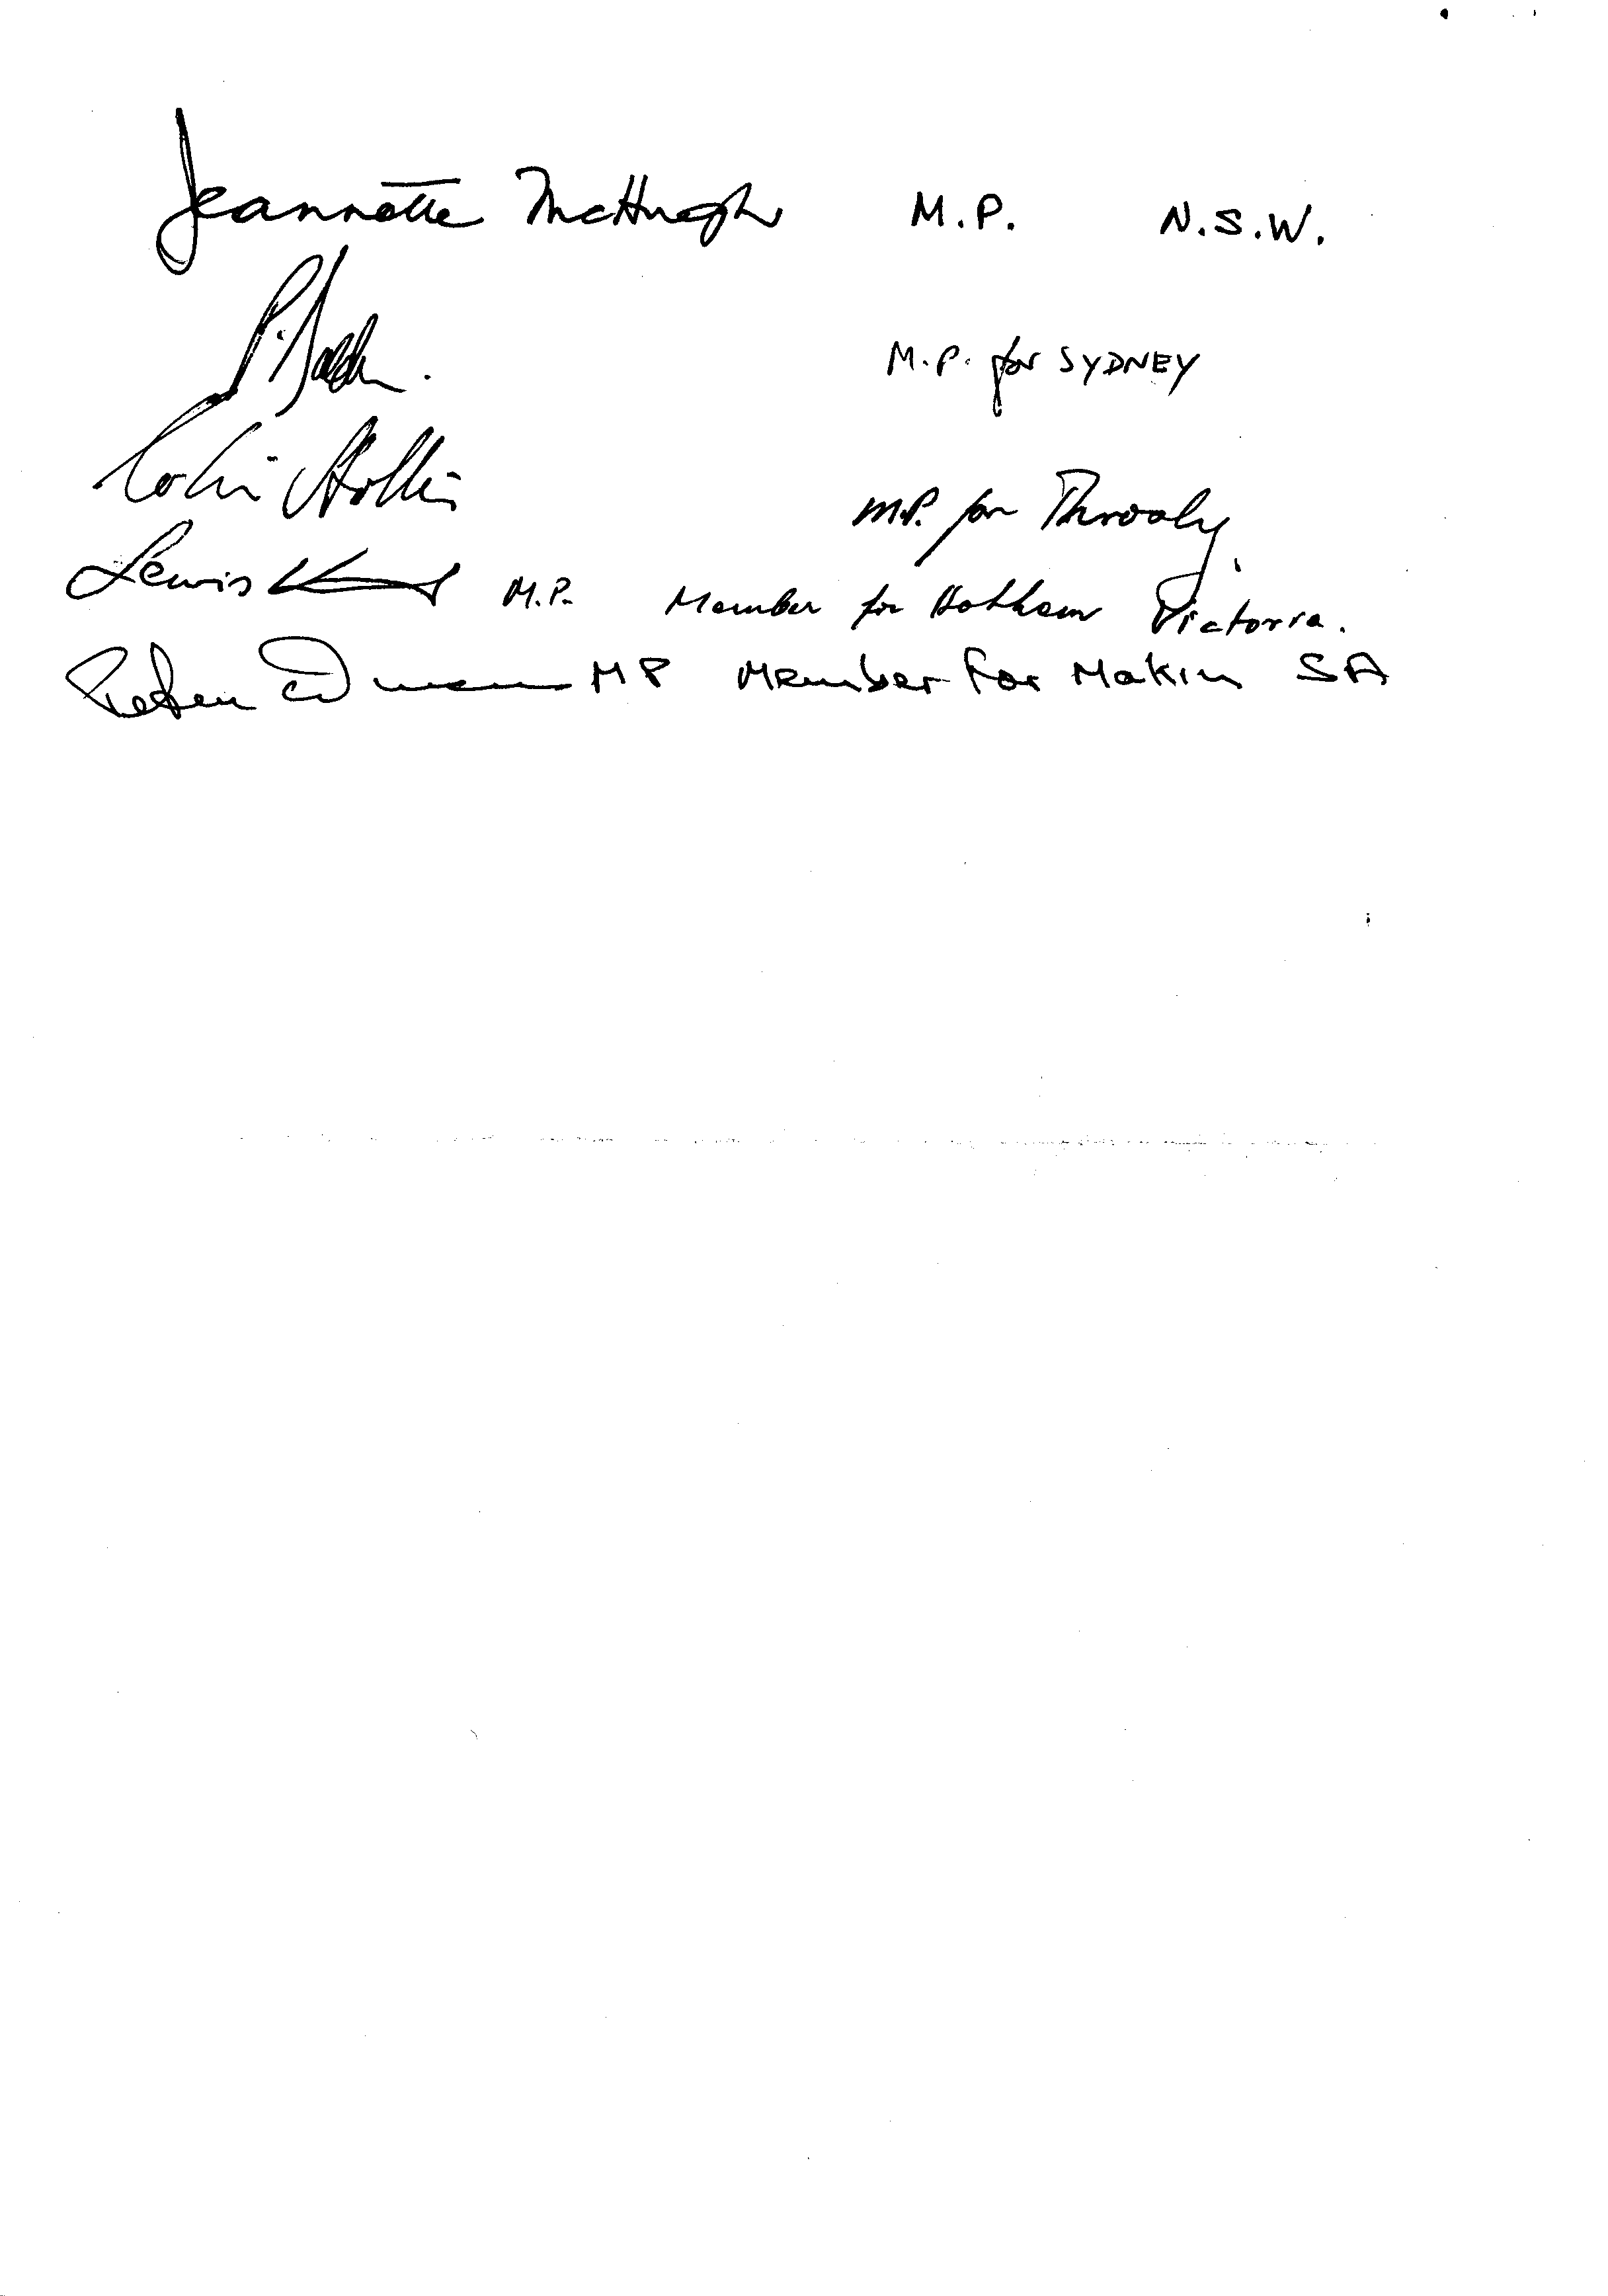 Jeannette McHugh M.P. N.S.W.
M.P. for SYDNEY
Colin Hollis M.P. for Throsby
Lewis Kent M.P. Member for Hotham Victoria.
Peter Duncan MP Member for Makin SA